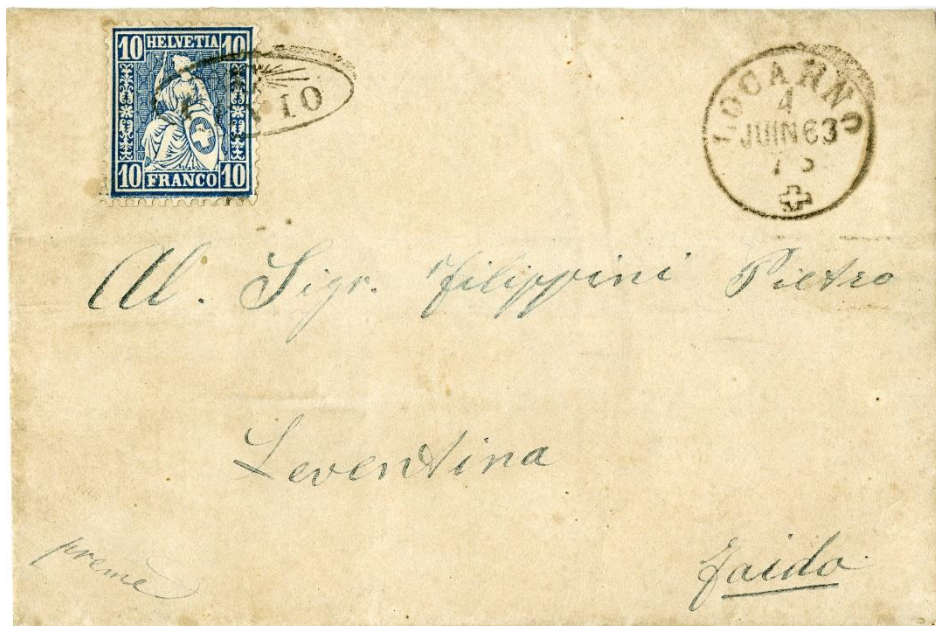 10 HELVETIA 10
10 FRANCO 10
LOCARNO
4
JUIN 63
Al. Sigr. Filippini Pietro
Leventina
preme
Faido